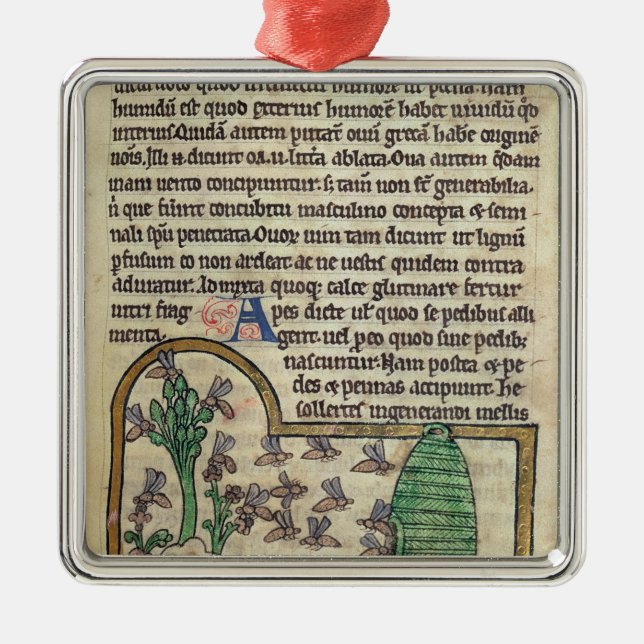 humidū est quod exterius humorē habet uiuidū q̄d
interius. Quidā autem putāt ouū grecā habe origine
nois. Illi n̄ dicunt oa. u. littā ablata. Oua autem q̄dam
inani uento concipiuntur. s; tam̄ non st̄ generabilia.
n̄ que fūint concubitu masculino concepta & semi
nali spū penetrata. Quoꝝ uim tam dicunt ut lignū
ꝑfusum eo non ardeat ac ne uestis quidem contra
aduratur. Admyxta quoq; calce glutinare fertur
uitri frag
menta. Apes dicte ul' quod se pedibus alli
gent. uel ꝑeo quod sine pedib;
nascuntur. Nam postea & pe
des & pennas accipiunt. he
sollertes ingenerandi mellis